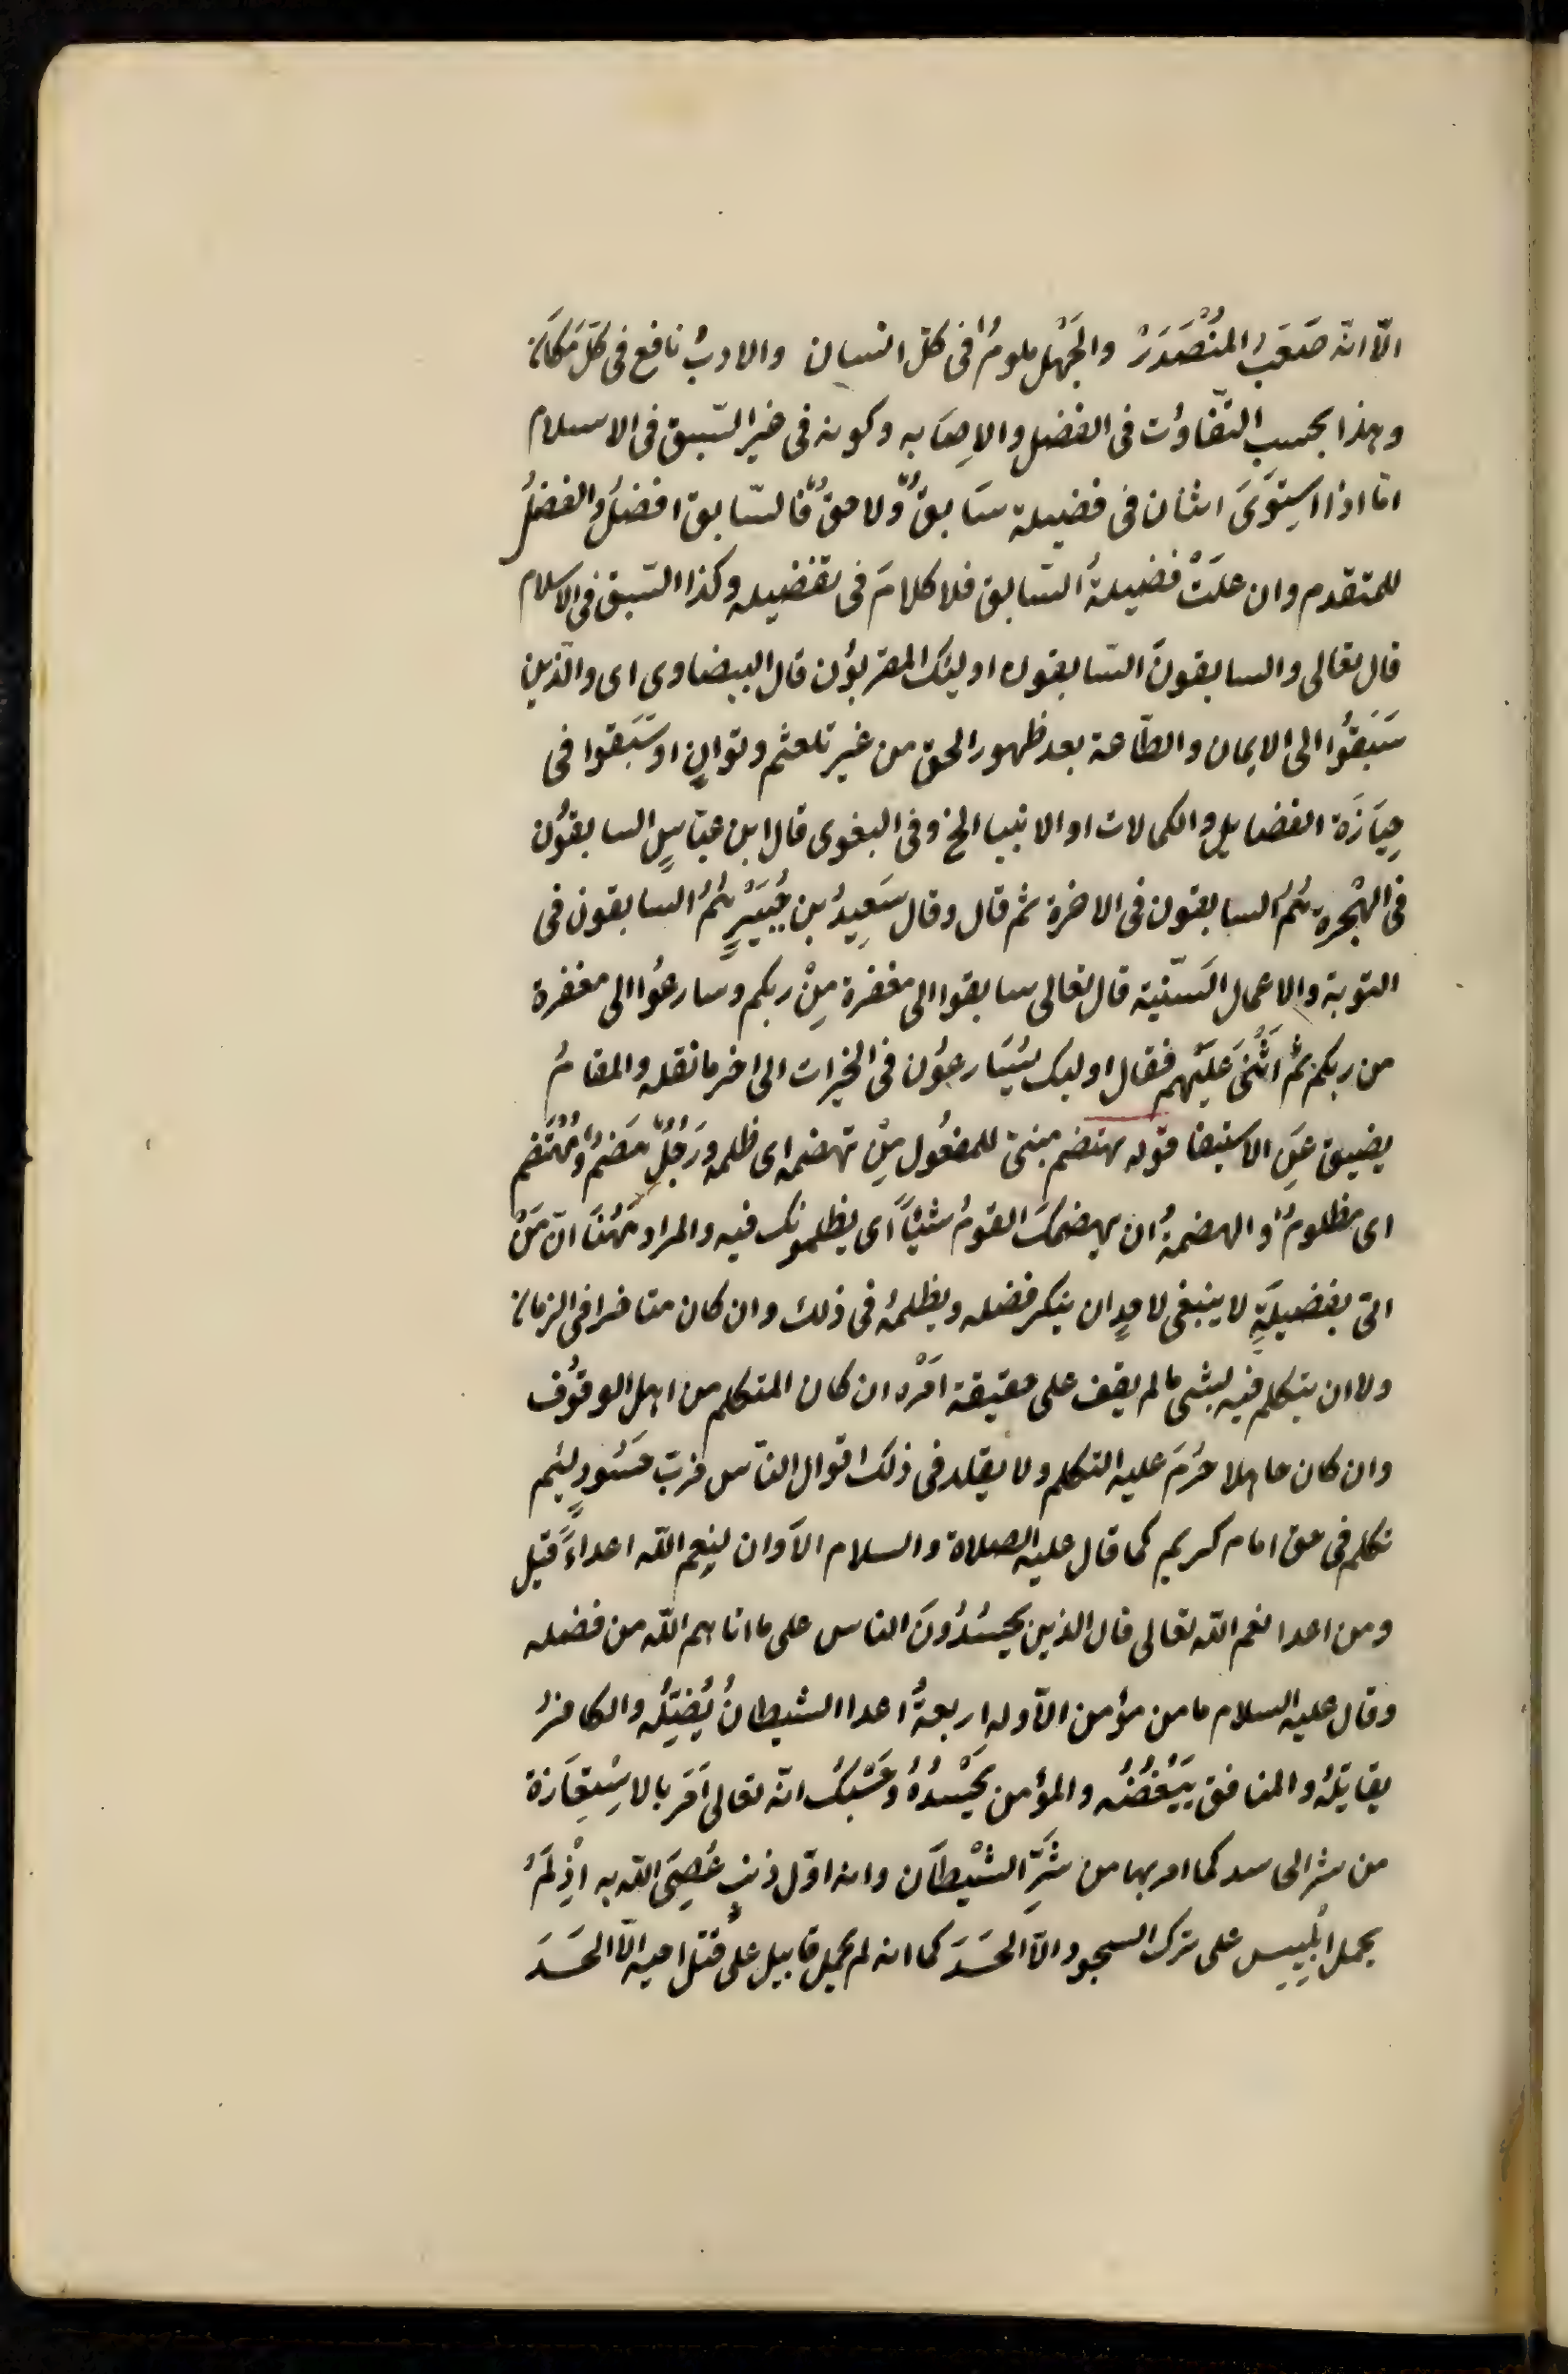 الّا انّه صَعَبُ المنْصَدَرْ والجَهْل ملومٌ فى كلّ انسان والادبُ نافع فى كلّ مَكَان
وهذا بحسب التّفاوُت فى الفضل والاِصَابه وكونه فى غير السّبق فى الاسلام
امّا اذا اسِتَوَىَ اثنان فى فضيلة سَابقٌ وّلاحقٌ فّالسّابق افضلُ والفضلُ
للمتقدم وان علَتْ فضيلةُ السّابق فلا كلامَ فى تفضيله وكذا السّبق فى الاسلام
قال تعالى والسابقونَ السّابقون اوليك المقربوُن قال البيضاوى اى والّذين
سَبَقُوُا الى الايمان والطّاعة بعد ظهور الحق من غير تلعثم وتوانٍ او سَبَقوا فى
حِيَازَة الفضايل والكمالات او الانبيا الخ وفى البغوى قال ابن عبّاسٍ السابقوُن
فى الهْجره هُمُ السابقون فى الاخرة ثم قال وقال سَعِيدُ بن جُبَيْرٍ هُمُ السابقون فى
التوبة والاعمال السَّنّية قال تعالى سابقوا الى مغفرة مِنْ ربكم وسارعوُا الى مغفرة
من ربكم ثُم اَثْنىَ عَليَهم فقال اوليك يُسَارعوُن فى الخيرات الى اخر ما نقله والمقامُ
يضيق عَنِ الاستيفا قوله يهتضم مبنىّ للمفعُول مِنْ تهضمه اى ظلمه ورَجُلٌ هَضمٌ ومُهْتَضم
اى مظلومٌ والهضمةُ ان يهضمكَ القومُ شيْئاً اَى يظلمونك فيه والمراد هَهُنَا انّ مَنْ
اتى بفضيلَةٍ لا ينبغى لاحدٍ ان ينكر فضله ويظلمهُ فى ذلك وان كان متاخرا فى الزمان
ولا ان يتكلم فيه بشى ما لم يقف على حقيقة اَمْره ان كان المتكلم من اهل الوقوُف
وان كان جاهلا حرُمَ عليه التكلم ولا يقلد فى ذلك اقوال النّاس فربّ حَسُودٍ لئيم
تكلم فى حق امام كريم كما قال عليه الصلاة والسلام الَا وان لنِعم اللّه اعداءً قيل
ومن اعدا نعم اللّه تعالى قال الذين يحسُدُونَ الناس على ما اتاهم اللّه من فضله
وقال عليه السلام ما من مؤمن الّا وله اربعةُ اعدا الشيطانُ يُضِلُّه والكافرُ
يقاتلهُ والمنافق يَبْغُضُه والمؤمن يَحْسُدُهُ وحَسْبكُ انّه تعالى اَمَر بالاسْتِعَازة
من شر الحاسد كما امر بها من شَرِّ الشْيطَان وانه اوّل ذنبٍ عُصِىَ اللّه به اِذ لمَْ
يحمل ابْلِيس على ترك السجود الّا الحَسَدَ كما انه لم يحمل قابيل على قتل اخيه الّا الحَسَدَ